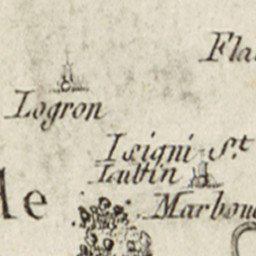 Fla
Logron
Isigni St.
Lubin
Marbou
le